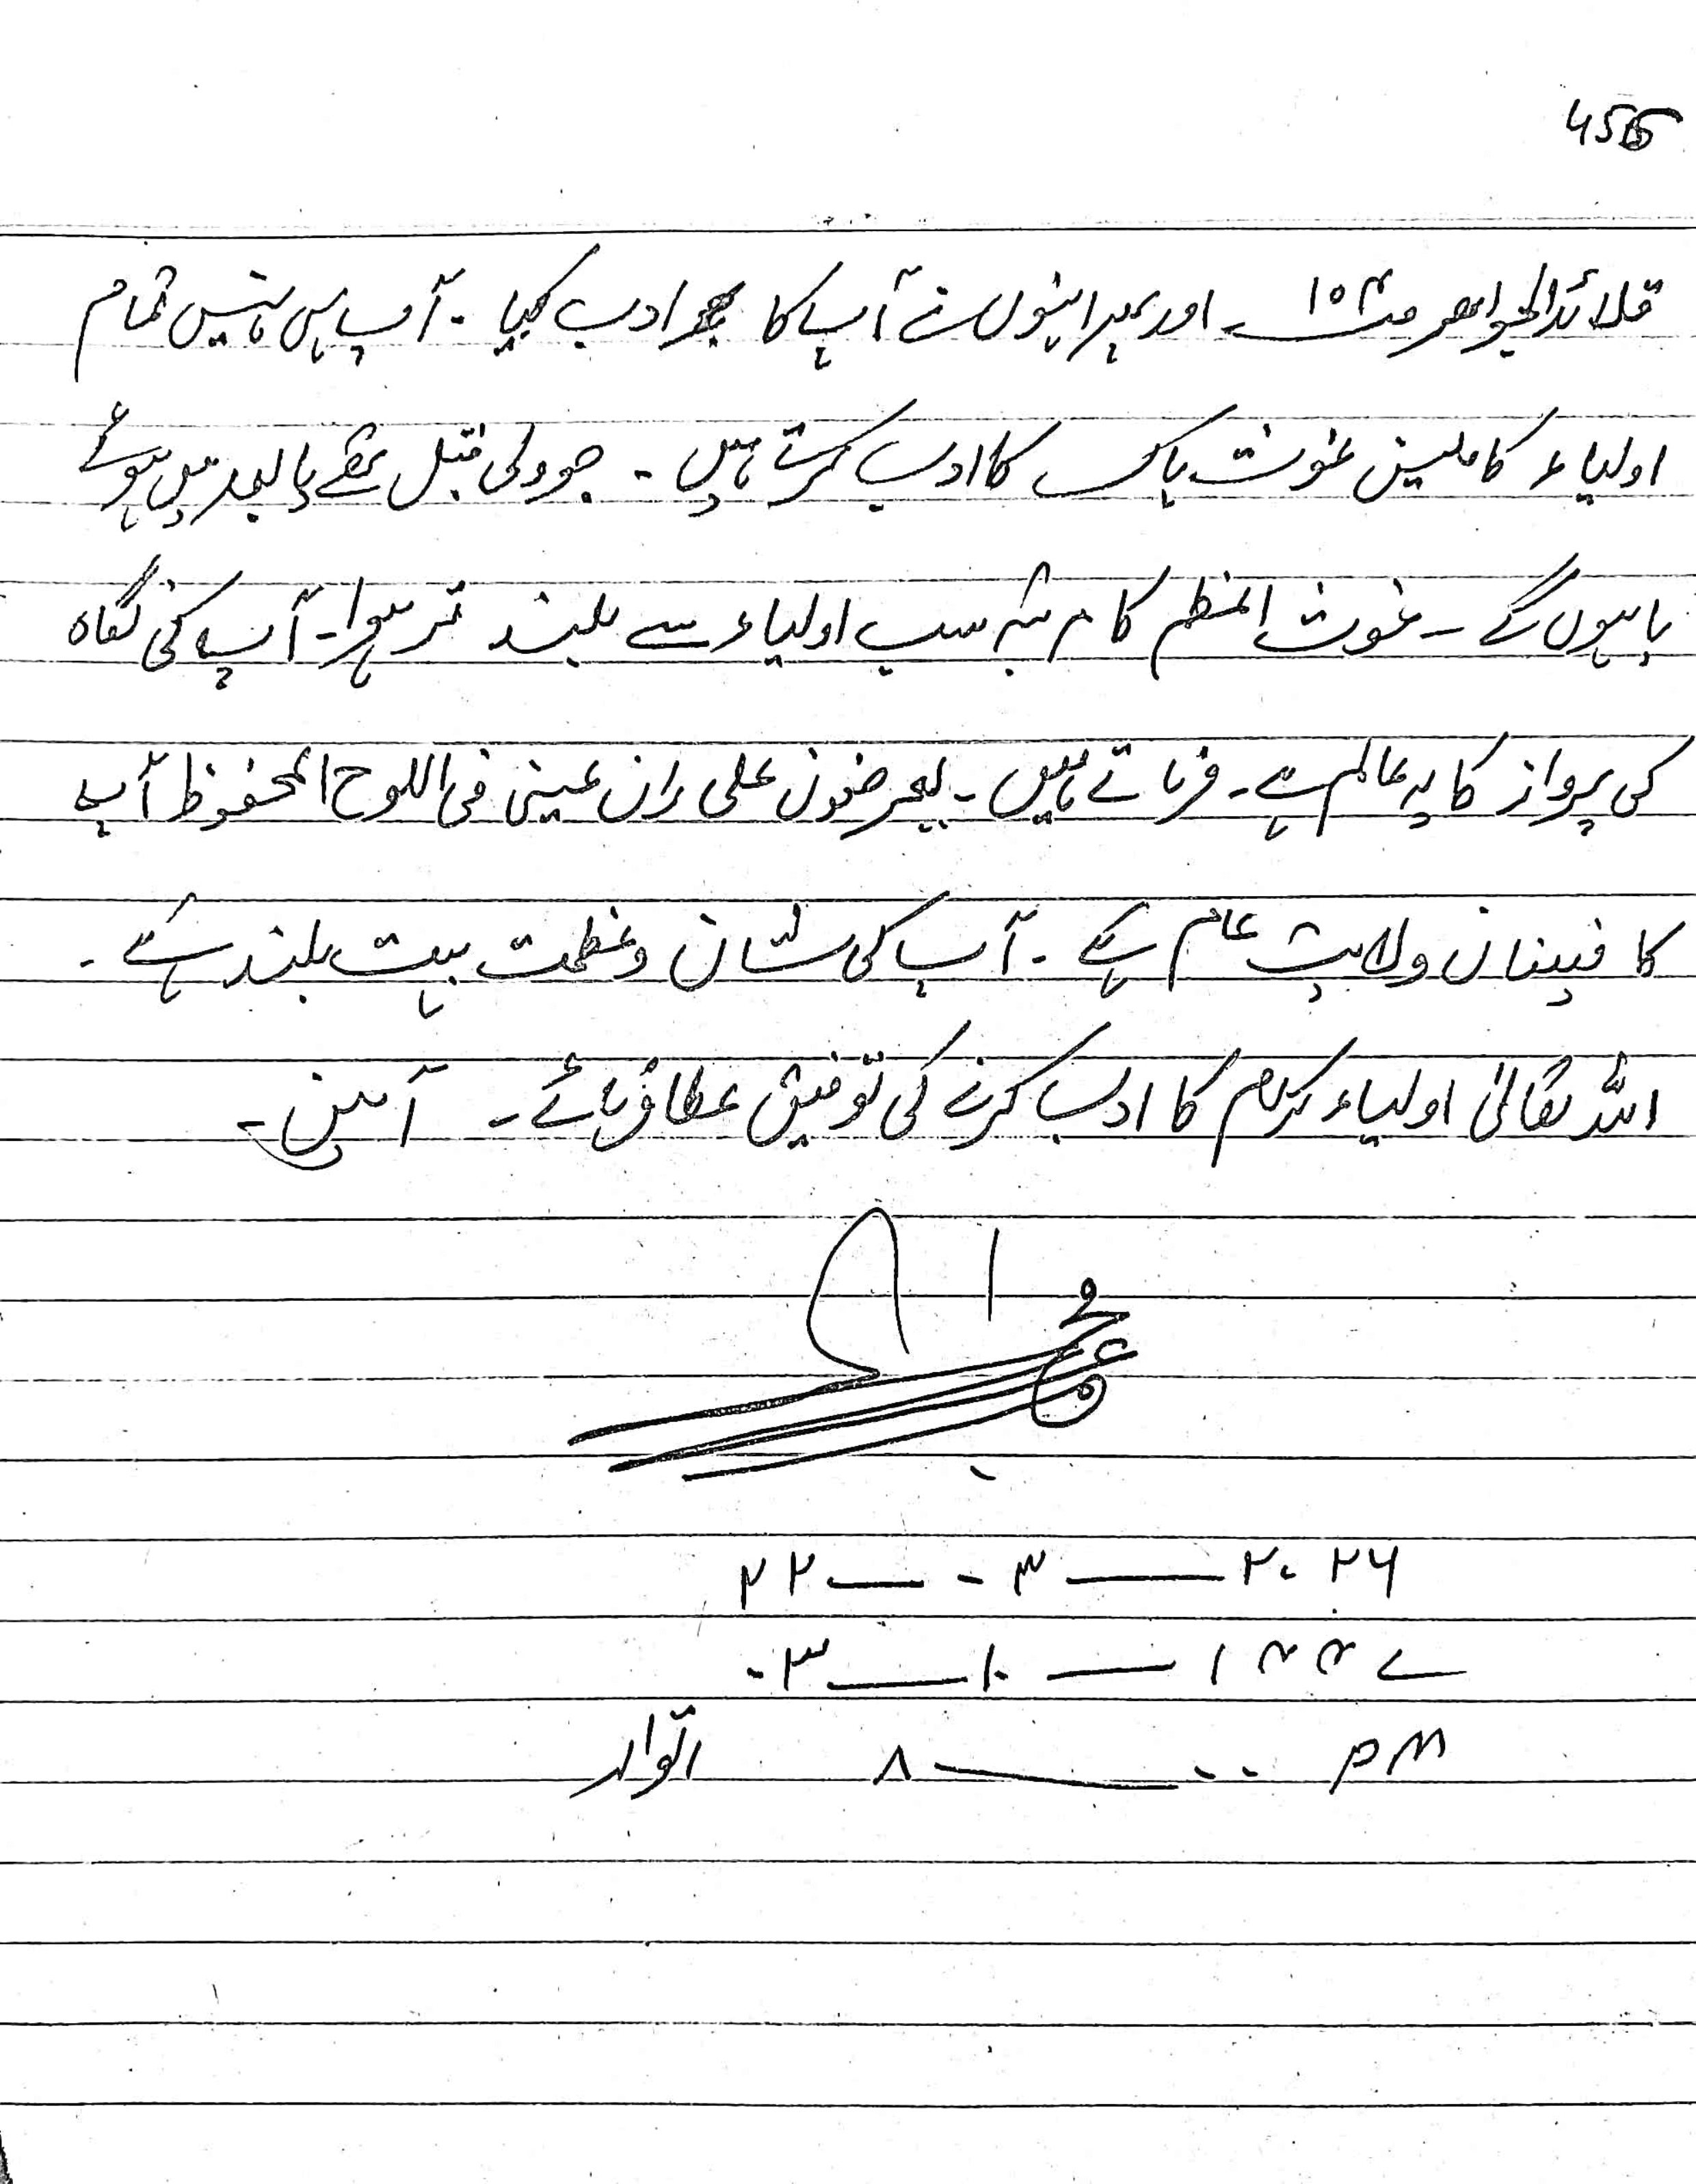 456
قلائد الجواهر ص ۱۵۴ ۔ اور پھر انہوں نے آپ کا ادب کیا ۔ آپ ہی نہیں تمام
اولیاء کاملین غوث پاک کا ادب کرتے ہیں ۔ جو ولی قبل تھے یا بعد میں ہوئے
یا ہوں گے ۔ غوث اعظم کا مرتبہ سب اولیاء سے بلند تر ہوا ۔ آپ کی نگاہ
کی پرواز کا یہ عالم ہے ۔ فرماتے ہیں ۔ یعرضون علی وان عینی فی اللوح المحفوظ آپ
کا فیضان ولایت عام ہے ۔ آپ کی شان و عظمت بہت بلند ہے ۔
اللہ تعالیٰ اولیاء کرام کا ادب کرنے کی توفیق عطا فرمائے ۔ آمین ۔
۲۲ ــ ۰۳ ــ ۲۰۲۶
۰۳ ــ ۱۰ ــ ۱۴۴۷
اتوار ۸ ــ ۰۰ PM